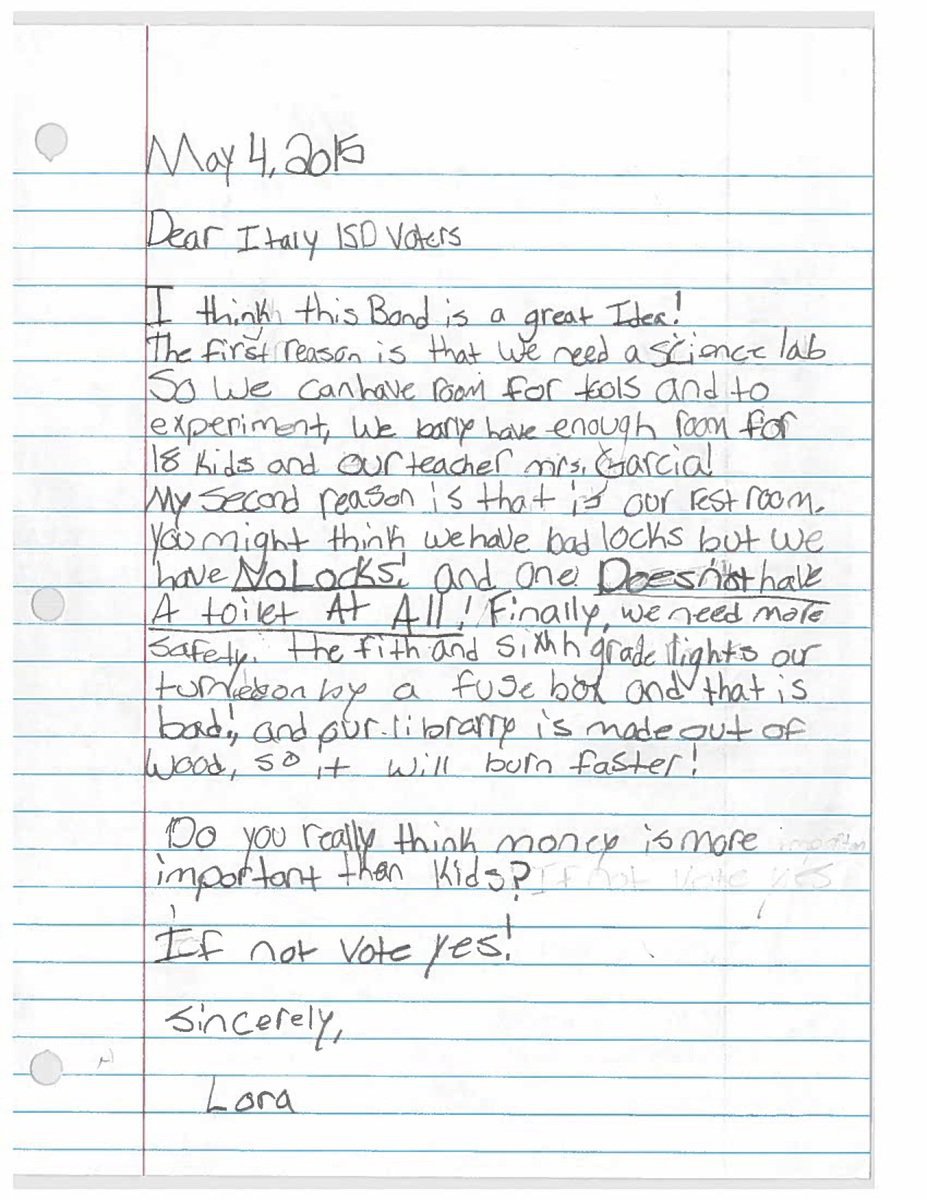 May 4, 2015
Dear Italy ISD Voters
I think this Bond is a great Idea!
The first reason is that we need a science lab
So We can have room for tools and to
experiment, We barly have enough room for
18 kids and our teacher mrs. Garcia!
My second reason is that is our rest room.
You might think we have bad locks but we
have No Locks! and one Doesn't have
A toilet At All! Finally, we need more
safety. the fith and sixth grade lights our
turned on by a fuse box and that is
bad!, and our library is made out of
Wood, so it will burn faster!
Do you really think money is more
important than kids? If not vote yes
If not vote yes!
Sincerely,
Lora